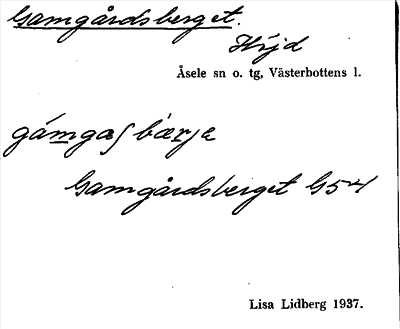 Gamgårdsberget.
Höjd
Åsele sn o. tg, Västerbottens l.
gámgaʃ bærja
Gamgårdsberget G54
Lisa Lidberg 1937.